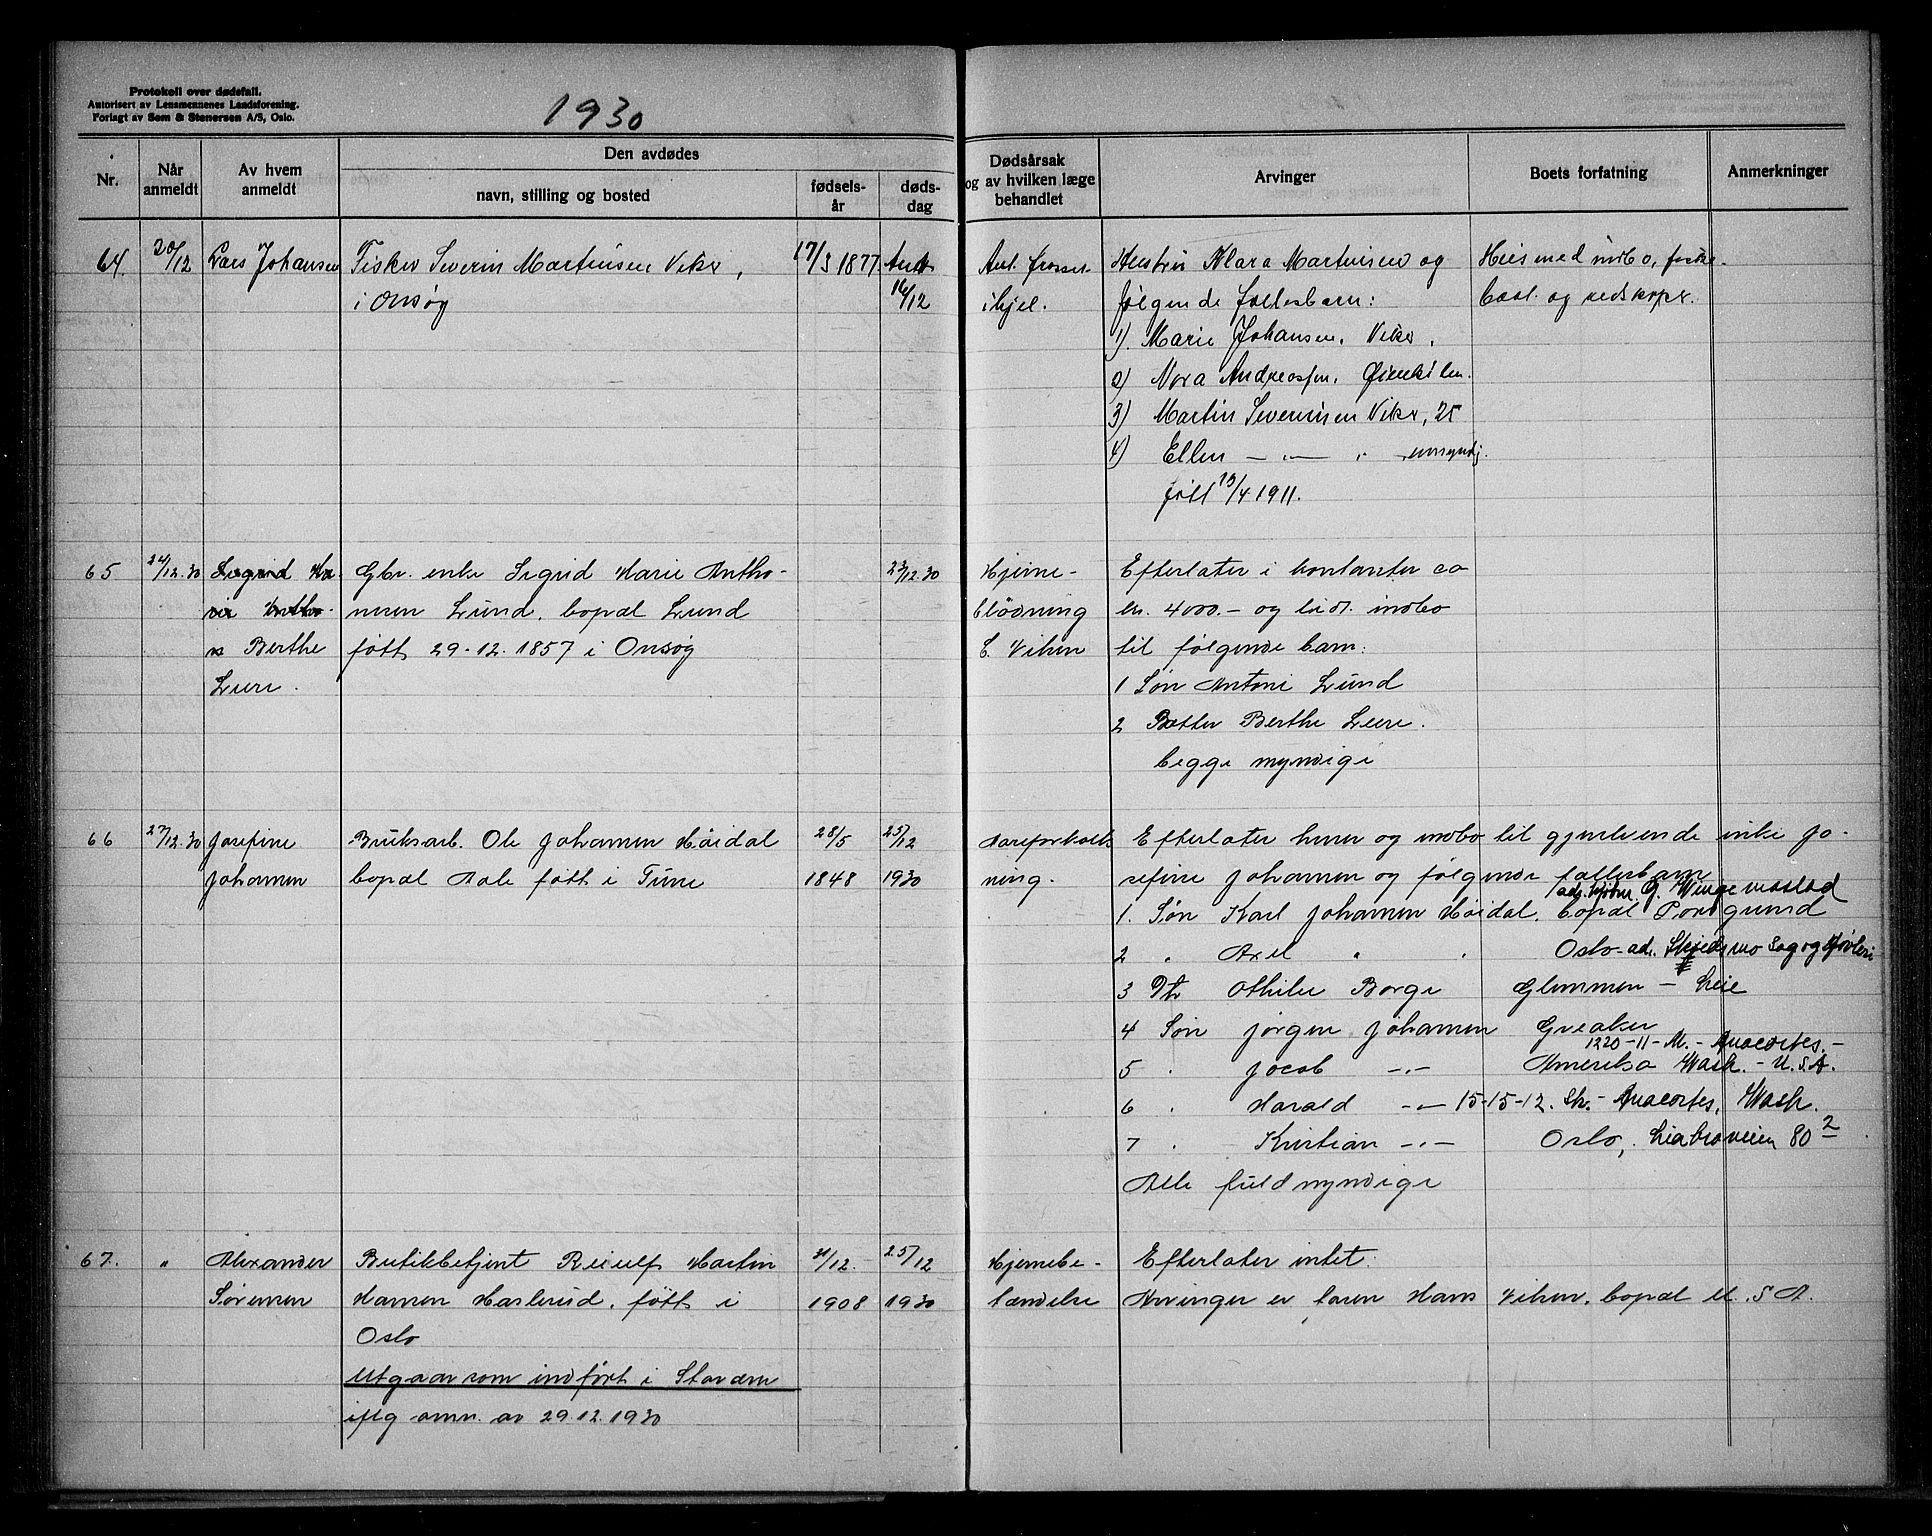 Protokoll over dødsfall.
Autorisert av Lensmennenes Landsforening.
Forlagt av Sem & Stenersen A/S, Oslo.
1930
Nr.
Når anmeldt
Av hvem anmeldt
Den avdødes
navn, stilling og bosted
fødsels-år
døds-dag
Dødsårsak og av hvilken læge behandlet
Arvinger
Boets forfatning
Anmerkninger
64.
20/12
Lars Johansen
Fisker Severin Martinsen Viker,
i Onsøy
17/3 1877.
Ant.
16/12
Ant. frosset
ihjel.
Hustru Klara Martinsen og
følgende fællesbarn:
1). Marie Johansen, Viker,
2) Nora Andreassen, Øienkilen.
3) Martin Severinsen Viker, 25
4) Ellen — „ — „ , umyndig.
født 13/4 1911.
Hus med indbo, fiske-
baat og redskaper.
65
24/12.30
Sigrid Ma-
rie Antho-
n Berthe
Lere.
Gbr. enke Sigrid Marie Antho-
nsen Lund, bopal Lund
født 29-12. 1857 i Onsøy
23/12.30
Hjerne-
blødning
E. Viken
Efterlater i kontanter ca
kr. 4000.- og lidt indbo
til følgende barn:
1 Søn Antoni Lund
2 Datter Berthe Lere.
begge myndige
66
27/12.30
Josefine
Johansen
Bruksarb. Ole Johansen Høidal
bopal Aale født i Tune
28/5
1848
25/12
1930
Aareforkalk-
ning.
Efterlater huser og indbo til gjenlevende enke Jo-
sefine Johansen og følgende fællesbarn
adr. Kjøbm. G. Winge mostad
1. Søn Karl Johansen Høidal, bopal Porsgrund
2 „ Axel „ „ Oslo - ad. Skjedsmo Sag og Høvleri
3 Dtr Othilie Borge Glemmen - Leie
4 Søn Jørgen Johansen Greaker
1220-11-M. - Anacortes. -
5 „ Jacob -„- Amerika Wash. - U.S.A.
6 „ Harald -„- 15-15-12. Sk. - Anacortes, Wash.
7 „ Kristian -„- Oslo, Liabroveien 80 2
Alle fuldmyndige
67.
„
Alexander
Sørensen
Butikbetjent Reiulf Martin
Hansen Haslerud, født i
Oslo
Utgaar som indført i Stavern
iflg anm. av 29.12.1930
31/12.
1908
25/12
1930
Hjernebe-
tændelse
Efterlater intet.
Arvinger er faren Hans Viken, bopal U.S.A.